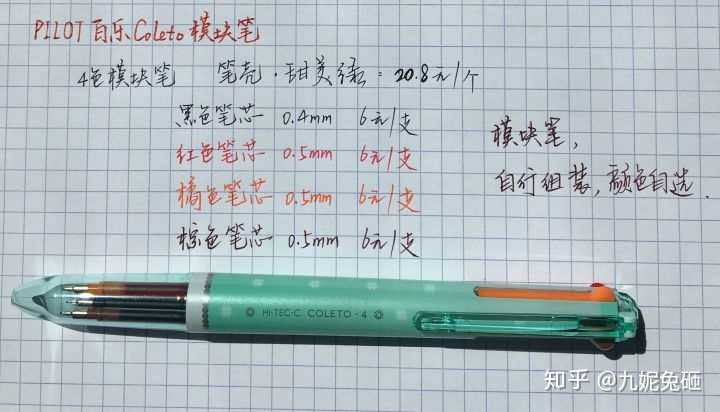 PILOT 百乐 Coleto 模块笔
4色模块笔 笔壳·甜美绿：20.8元/个
黑色笔芯 0.4mm 6元/支
红色笔芯 0.5mm 6元/支
橘色笔芯 0.5mm 6元/支
棕色笔芯 0.5mm 6元/支
模块笔，
自行组装，颜色自选.
HI-TEC-C COLETO - 4
知乎 @九妮兔砸